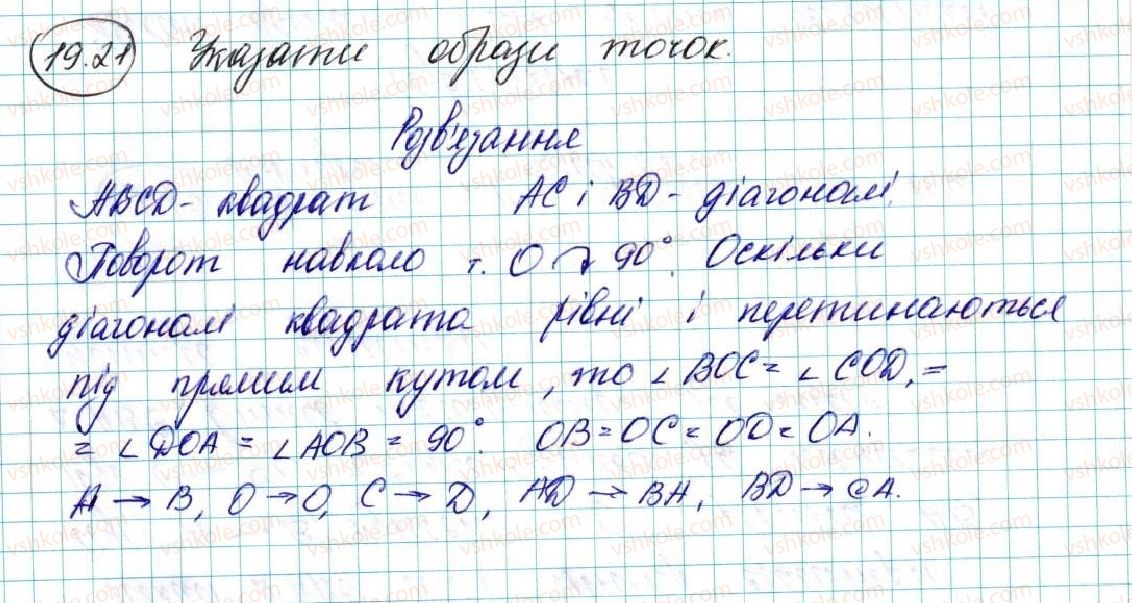 19.21 Указати образи точок.
Розв'язання
ABCD - квадрат AC і BD - діагоналі.
Поворот навколо т. O ↷ 90°. Оскільки
діагоналі квадрата рівні і перетинаються
під прямим кутом, то ∠ BOC = ∠ COD, =
= ∠ DOA = ∠ AOB = 90°. OB = OC = OD = OA.
A → B, O → O, C → D, AD → BA, BD → CA.